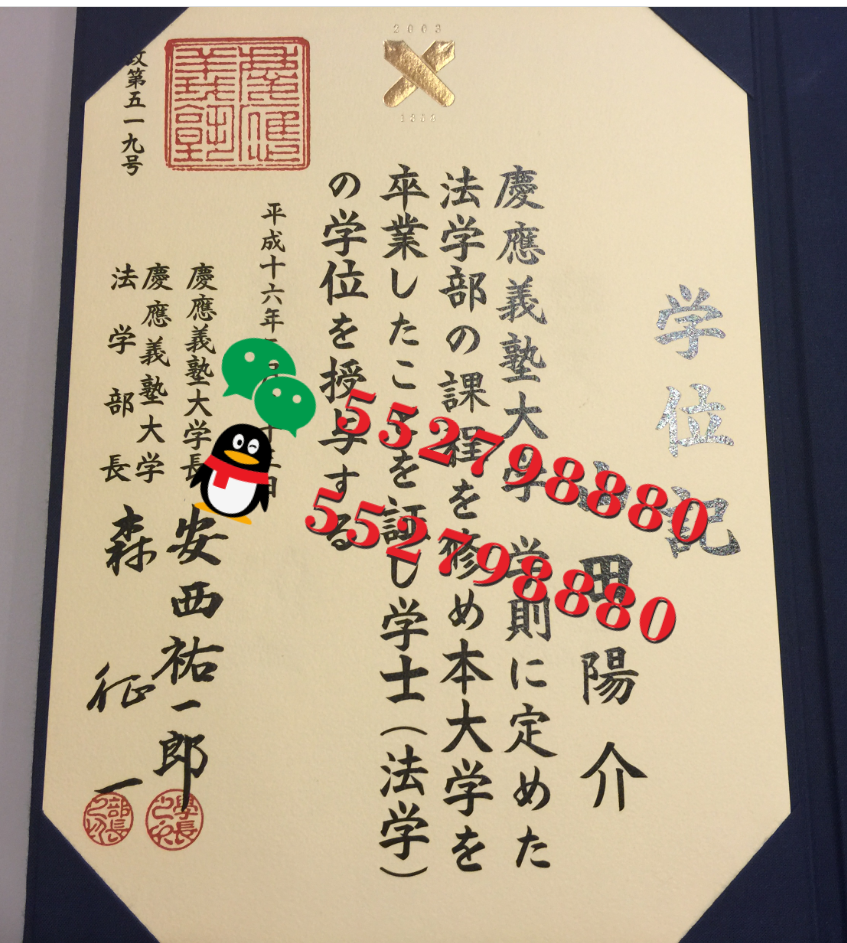 学位記
田陽介
慶應義塾大学学則に定めた
法学部の課程を修め本大学を
卒業したことを証し学士（法学）
の学位を授与する
平成十六年
慶應義塾大学長 安西祐一郎
慶應義塾大学
法学部長 森征一
政第五一九号
552798880
552798880